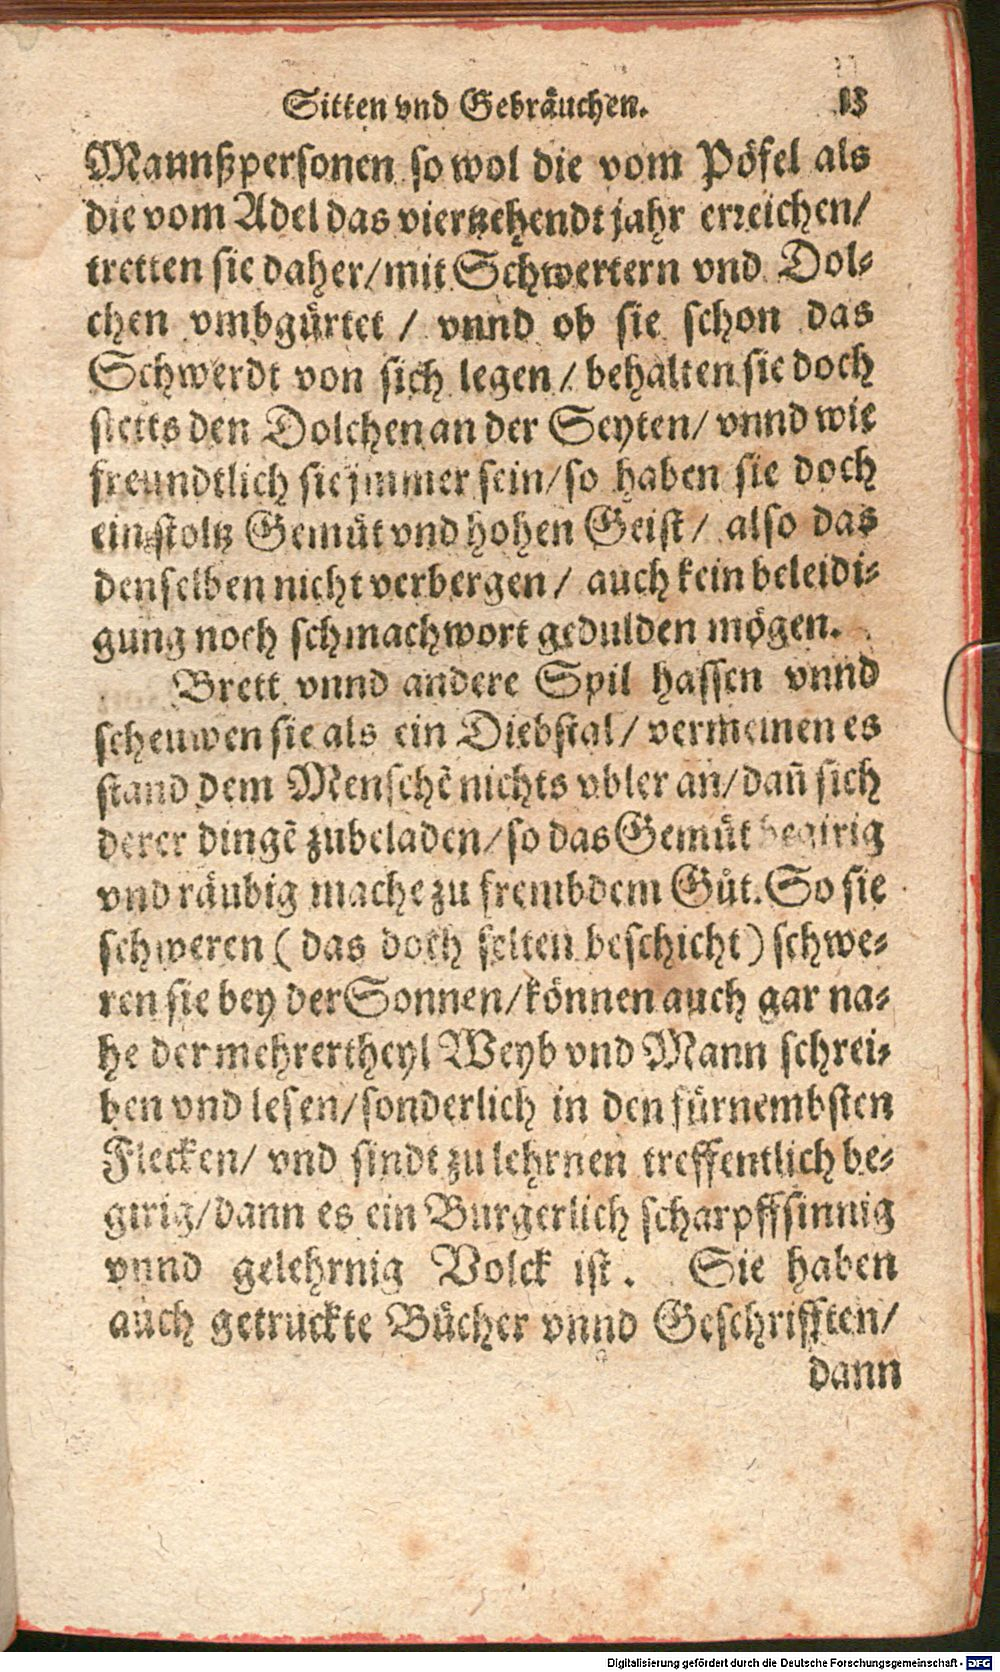 Sitten vnd Gebräuchen. 13
Mannßpersonen so wol die vom Pöfel als
die vom Adel das viertzehendt jahr erreichen/
tretten sie daher/ mit Schwertern vnd Dol⸗
chen vmbgürtet / vnnd ob sie schon das
Schwerdt von sich legen / behalten sie doch
stetts den Dolchen an der Seyten/ vnnd wie
freundtlich sie jmmer sein/ so haben sie doch
ein stoltz Gemüt vnd hohen Geist/ also das
denselben nicht verbergen/ auch kein beleidi⸗
gung noch schmachwort gedulden mögen.
Brett vnnd andere Spil hassen vnnd
scheuwen sie als ein Diebstal/ vermeinen es
stand dem Menschẽ nichts vbler an/ dañ sich
derer dingẽ zubeladen/ so das Gemüt begirig
vnd räubig mache zu frembdem Gůt. So sie
schweren (das doch selten beschicht) schwe⸗
ren sie bey der Sonnen/ können auch gar na⸗
he der mehrertheyl Weyb vnd Mann schrei⸗
ben vnd lesen/ sonderlich in den fürnembsten
Flecken/ vnd sindt zu lehrnen treffentlich be⸗
girig/ dann es ein Burgerlich scharpffsinnig
vnnd gelehrnig Volck ist. Sie haben
auch getruckte Bücher vnnd Geschrifften/
dann
Digitalisierung gefördert durch die Deutsche Forschungsgemeinschaft - DFG